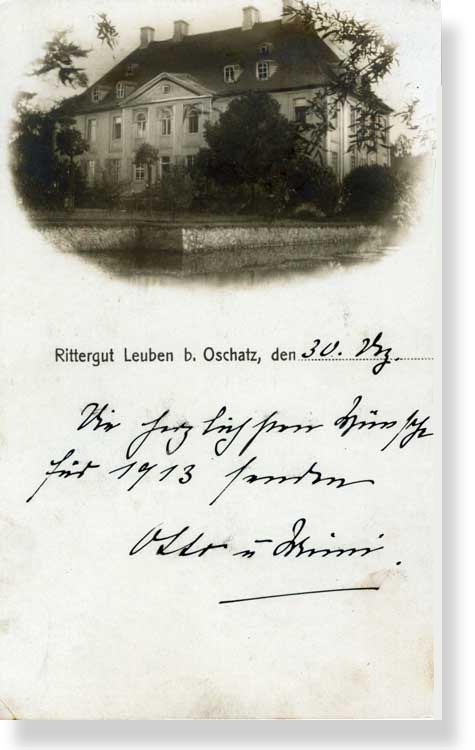 Rittergut Leuben b. Oschatz, den 30. Dez.
Die herzlichsten Wünsche
für 1913 senden
Otto u Mimi.